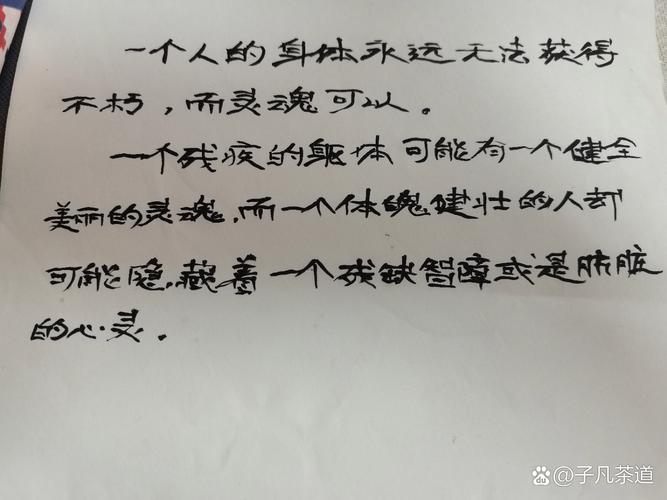 一个人的身体永远无法获得
不朽，而灵魂可以。
一个残疾的躯体可能有一个健全
美丽的灵魂，而一个体魄健壮的人却
可能隐藏着一个残缺智障或是肮脏
的心灵。
@子凡茶道